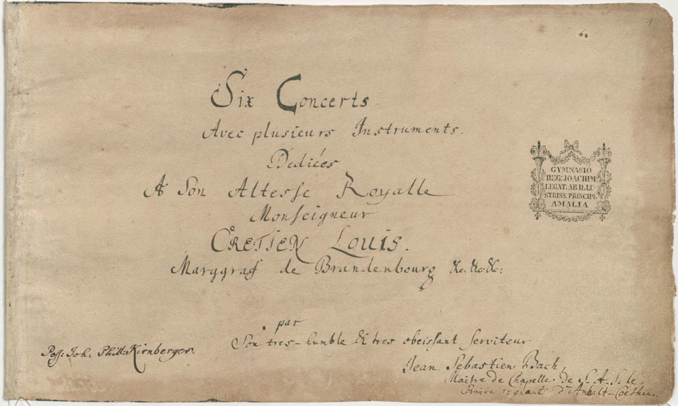 Six Concerts
Avec plusieurs Instruments.
Dediées
A Son Altesse Royalle
Monseigneur
CRETIEN LOUIS.
Marggraf de Brandenbourg &c. &c. &c:
par
Son tres-humble & tres obeissant serviteur
Jean Sebastien Bach,
Maitre de Chapelle de S. A. S. le
Prince regnant d'Anhalt-Coethen.
Poss: Joh. Phill. Kirnberger.
GYMNASIO
IOACHIM
LEGAT. AB ILLU
STRISS. PRINCIPE
AMALIA